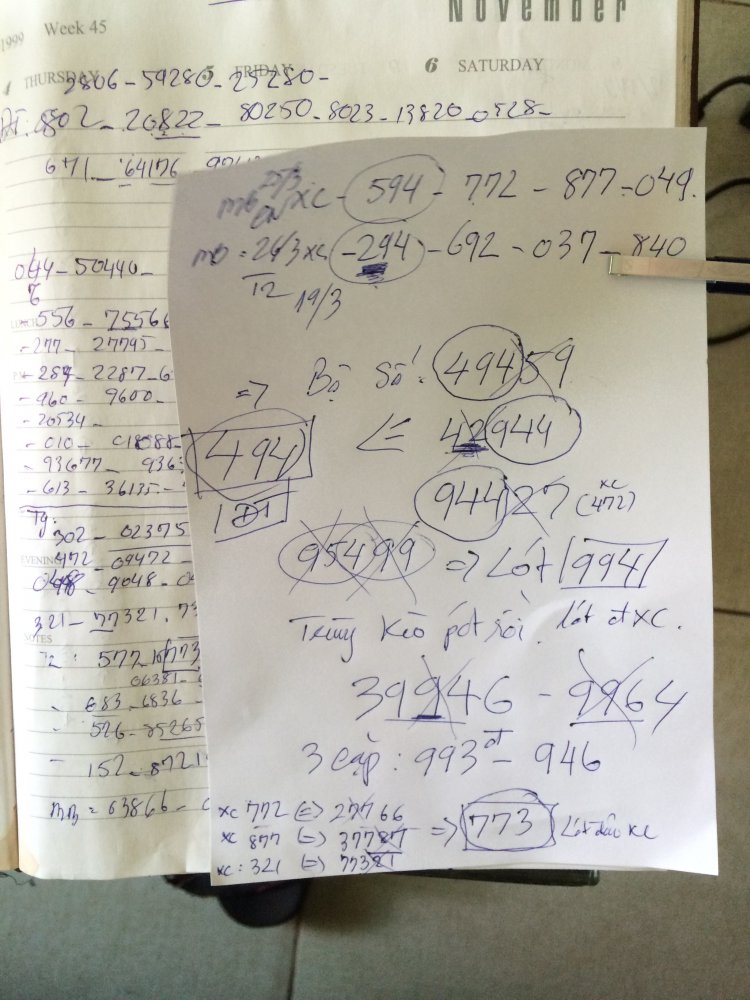 November
1999 Week 45
4 THURSDAY 5 FRIDAY 6 SATURDAY
2806 - 59280 - 25280 -
8802 - 20822 - 80250 - 8023 - 13820 - 0528 -
671 - 64176 -
044 - 50440 -
556 - 75566
- 277 - 27795 -
- 287 - 2287 - 6
- 960 - 9600 -
- 20534 -
- 010 -
- 93677 - 936
- 613 - 36135 -
302 - 02375
EVENING
472 - 09472 -
9048 -
321 - 77321. 73
NOTES
T2: 577 773
06381 -
683 - 6836 -
526 - 85265
152 - 8721
MB = 63866 -
MB 25/3 XC - 594 - 772 - 877 - 049.
MB = 24/3 XC - 294 - 692 - 037 - 840
T2 19/3
=> Bộ Số: 49459
494 <= 42944
1 ĐT
94427 XC (472)
95499 => Lót 994
Trúng Kèo pót rồi. Lót đt XC.
39946 - 9964
3 cặp: 993 đt - 946
XC 772 <=> 27766
XC 877 <=> 37787 => 773 Lót đầu XC
XC: 321 <=> 77321